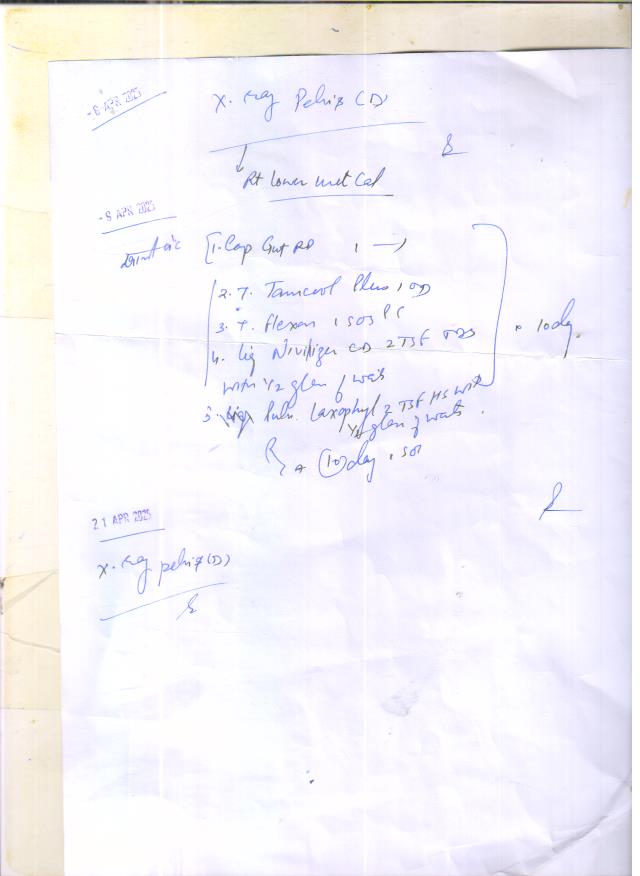 -8 APR 2025
X-ray Pelvis (D)
↓
Rt lower uret Cal
-8 APR 2025
[1. Cap Gut RD 1 —)
2. T. Tamcool Plus 1 OD
3. T. Flexon 1 SOS PC
4. Liq Nivilizer CD 2 TSF TDS
with 1/2 glass of water
5. Pulv. Laxophyl 2 TSF HS with
1/2 glass of water.
10 day.
(10) day , SOS
21 APR 2025
X-ray pelvis (D)